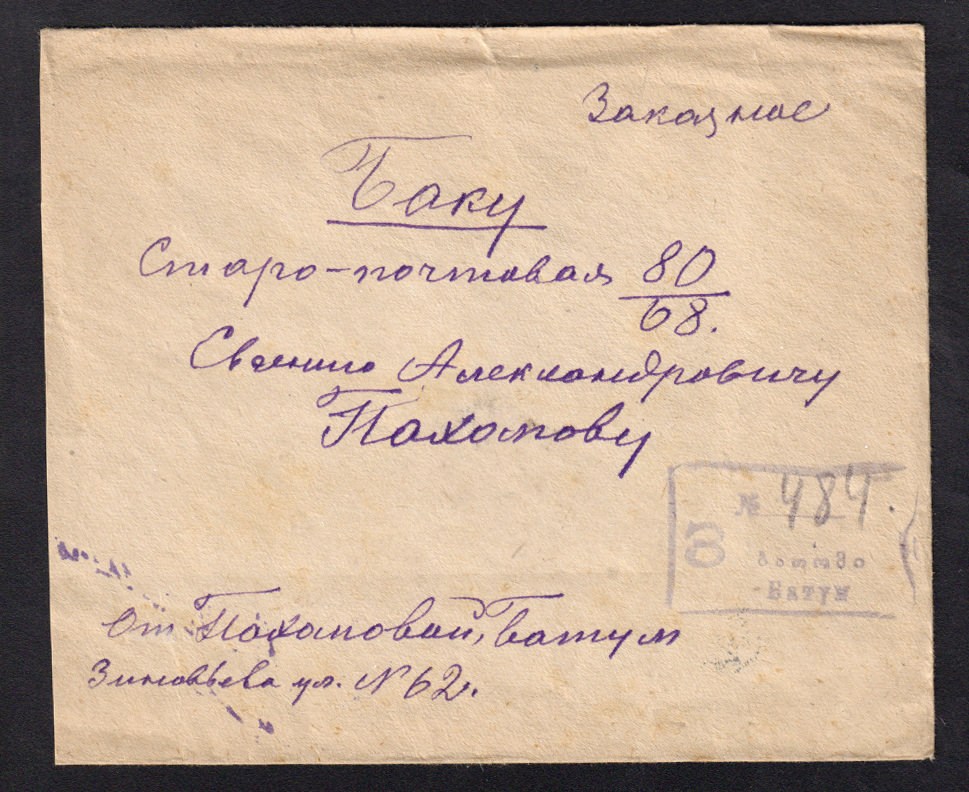 Заказное
Баку
Старо-почтовая 80/68.
Евгению Александровичу
Пахомову
№ 484.
З
ბოთომი
БАТУМ
От Пахомовой, Батум
Зиновьева ул. № 62.